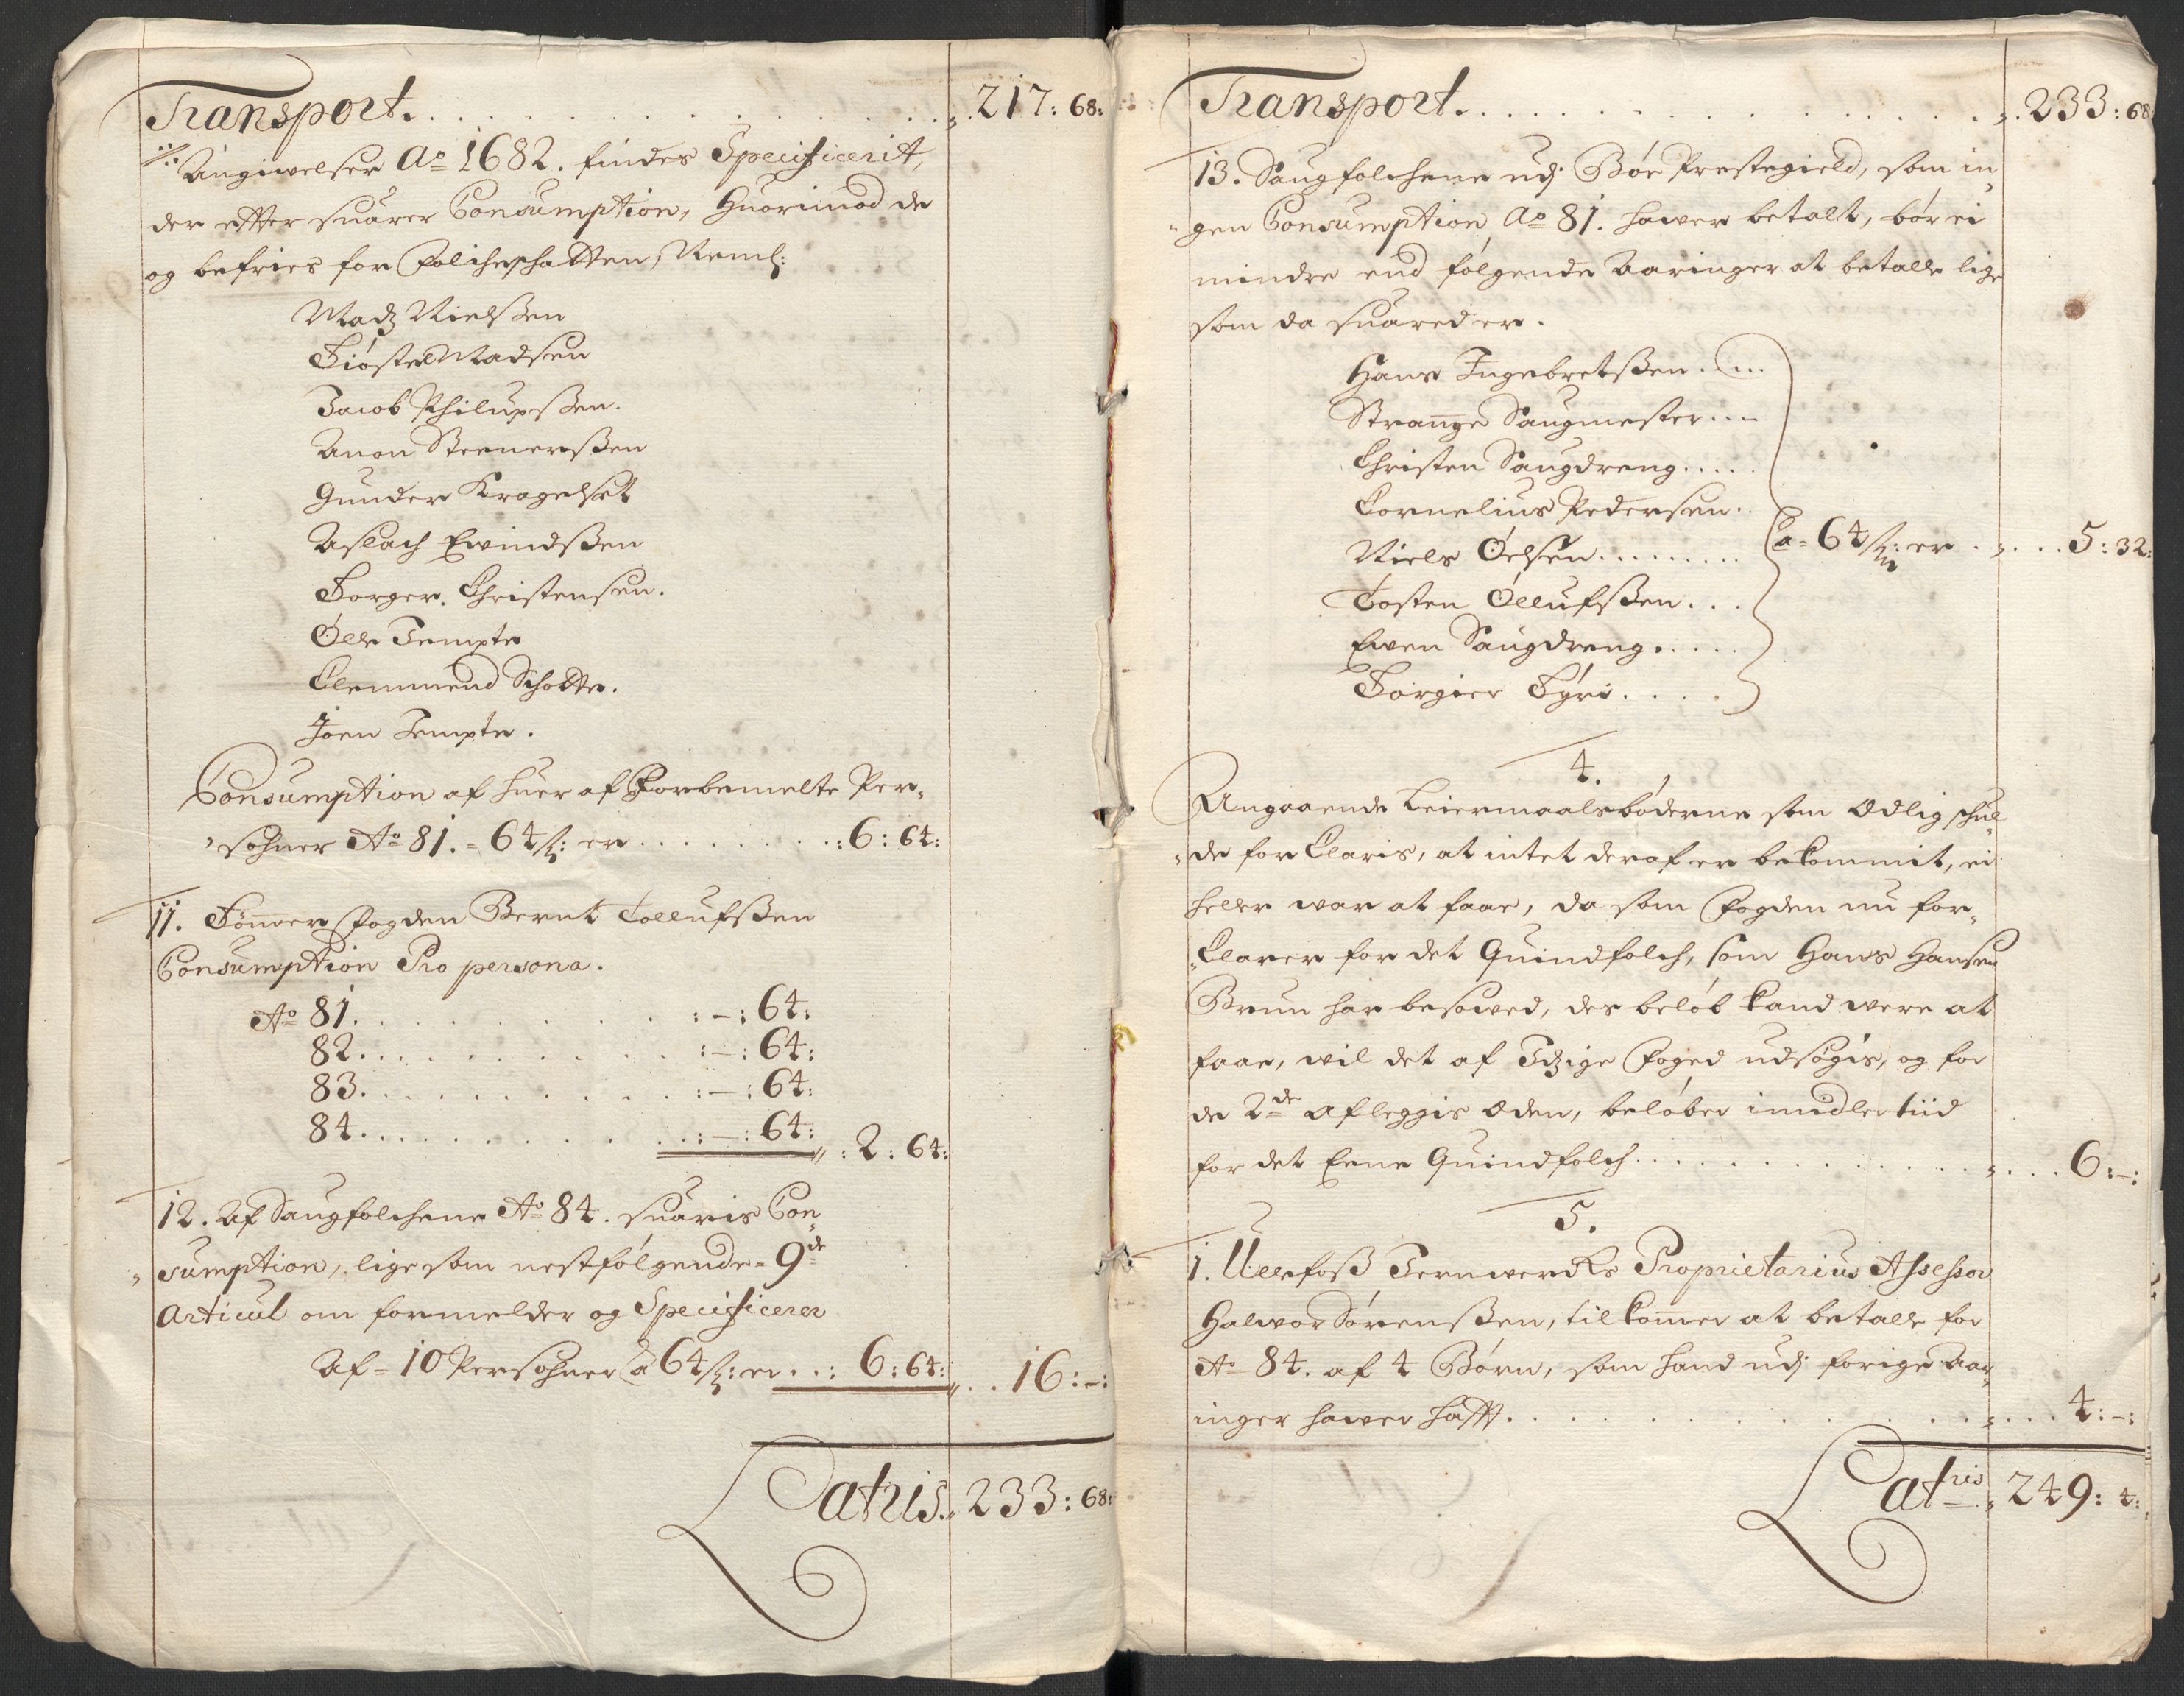 Transport. . . . . . . . . . . . 217: 68:
Angivelser Ao 1682. findes Specificerit,
der efter suarer Consumption, Huorimod de
og befries for Folcheschatten, Neml:
Madz Nielssen
Kiøstel Madsen
Jacob Philupssen.
Anon Steenerssen
Gunder Kragelset
Aslach Evindssen
Torger Christensen.
Olle Tempte
Clemmend Schotte.
Joen Tempte.
Consumption af huer af Forbemelte Per-
sohner Ao 81. - 64 s: er . . . . . . . . : 6: 64:
11. Tømmer Fogden Bernt Tollufssen
Consumption Pro persona.
Ao 81. . . . . . . . . . : - : 64:
82. . . . . . . . . . : - : 64:
83. . . . . . . . . . : - : 64:
84. . . . . . . . . . : - : 64: : 2: 64:
12. Af Saugfolchene Ao 84. suaris Con-
sumption, lige som nestfølgende - 9de
Articul om formelder og Specificerer
Af - 10 Persohner a 64 s: er . . : 6: 64: . . 16: - :
Latris. 233: 68:
Transport. . . . . . . . . . . . 233: 68
13. Saugfolchene udj Bøe Prestegield, som in-
gen Consumption Ao 81. hawer betalt, bør ei
mindre end følgende Aaringer at betalle lige
som da suared er.
Hans Ingebretssen. . . .
Strange Saugmester . . .
Christen Saugdreng. . . . .
Cornelius Pedersen. .
Niels Oelsen. . . . . . . . . a - 64 s: er . . . . 5: 32:
Tosten Ollufssen. . .
Even Saugdreng. . . . .
Torgier Fyri. . . .
4.
Angaaende Leiermaalsbøderne som Ødlig schul-
de for Claris, at intet deraf er bekommit, ei
heller war at faae, da som Fogden nu for-
Clarer for det Quindfolch, som Hans Hansen
Brun har besowed, des beløb kand were at
faae, wil det af Itzige Foged udsøgis, og for
de 2de afleggis Æden, beløber imidlertiid
for det Eene Quindfolch. . . . . . . . . . . . . . 6: - :
5.
1. Ullefoss Jernwercks Proprietarius Assessor
Halwor Sørenssen, tilkommer at betalle for
Ao 84. af 4 Børn, som hand udj forige Aar-
inger hawer hafft. . . . . . . . . . . . . . . 4: - :
Latris 249: 4: